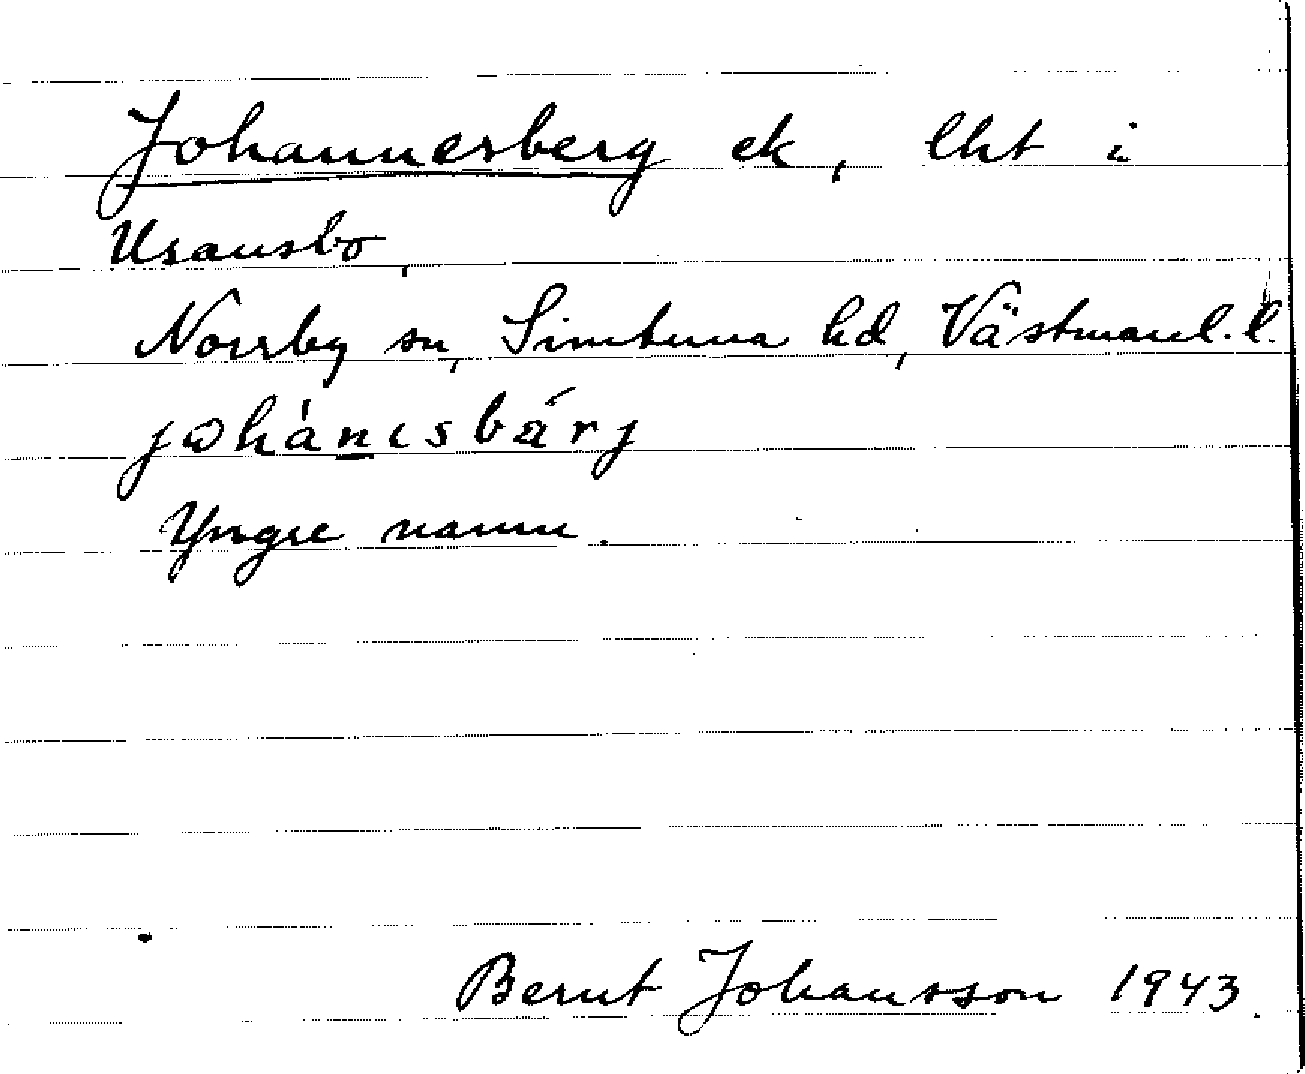 Johannesberg ek, lht i
Usansbo,
Norrby sn, Simtuna hd, Västmanl. l.
johànɩsbä́rj
Yngre namn.
Bernt Johansson 1943.